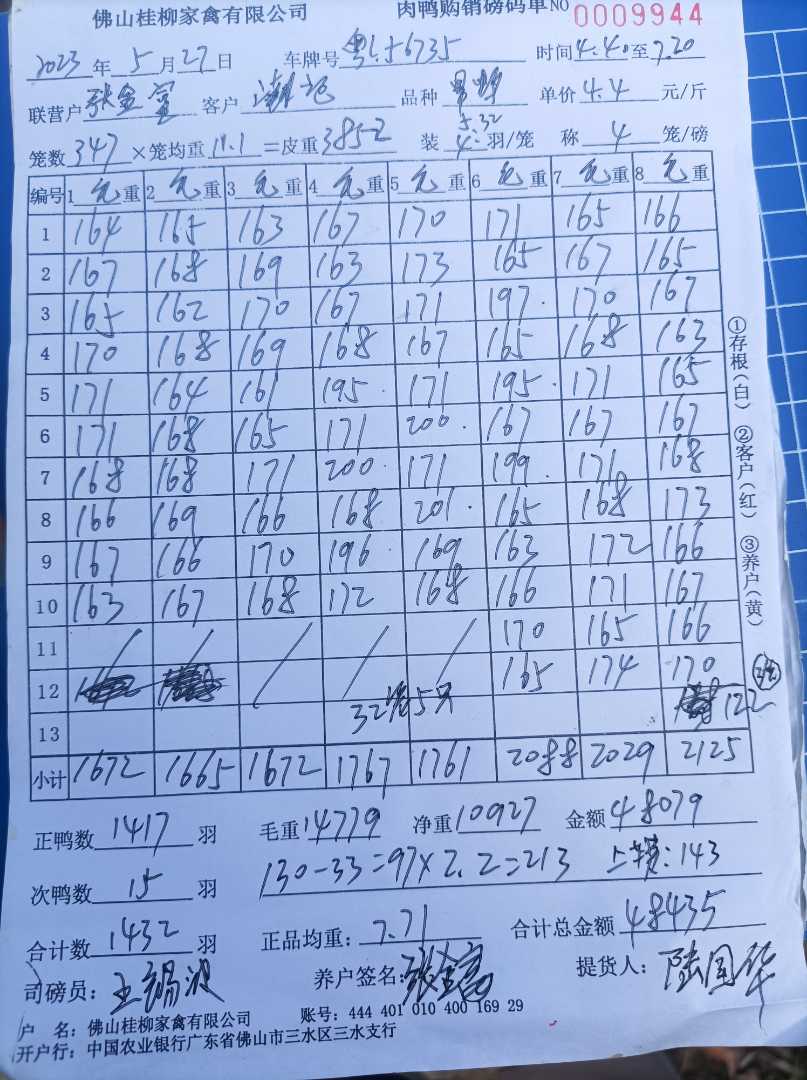 佛山桂柳家禽有限公司 肉鸭购销磅码单NO 0009944
2023年5月27日 车牌号 粤L·J6735 时间4.40至7.20
联营户 张金富 客户 潮记 品种 单价4.4元/斤
笼数347×笼均重11.1=皮重3852 装 4. 5.32 羽/笼 称 4 笼/磅
编号 1毛重 2毛重 3毛重 4毛重 5毛重 6毛重 7毛重 8毛重
1 164 165 163 167 170 171 165 166
2 167 168 169 163 173 165 167 165
3 165 162 170 167 171 197. 170 167
4 170 168 169 168 167 165 168 163
5 171 164 161 195. 171 195. 171 165
6 171 168 165 171 200. 167 167 167
7 168 168 171 200. 171 199. 171 168
8 166 169 166 168 201. 165 168 173
9 167 166 170 196. 169 163 172 166
10 163 167 168 172 168 166 171 167
11 / / / / / 170 165 166
12 / / / 165 174 170
13 32笼5只 122
小计 1672 1665 1672 1767 1761 2088 2029 2125
正鸭数 1417 羽 毛重 14779 净重 10927 金额 48079
次鸭数 15 羽 130-33=97×2.2=213 上车费:143
合计数 1432 羽 正品均重: 7.71 合计总金额 48435
司磅员: 王锡波 养户签名: 张金富 提货人: 陆国华
户 名: 佛山桂柳家禽有限公司 账号: 444 401 010 400 169 29
开户行: 中国农业银行广东省佛山市三水区三水支行
①存根(白) ②客户(红) ③养户(黄)